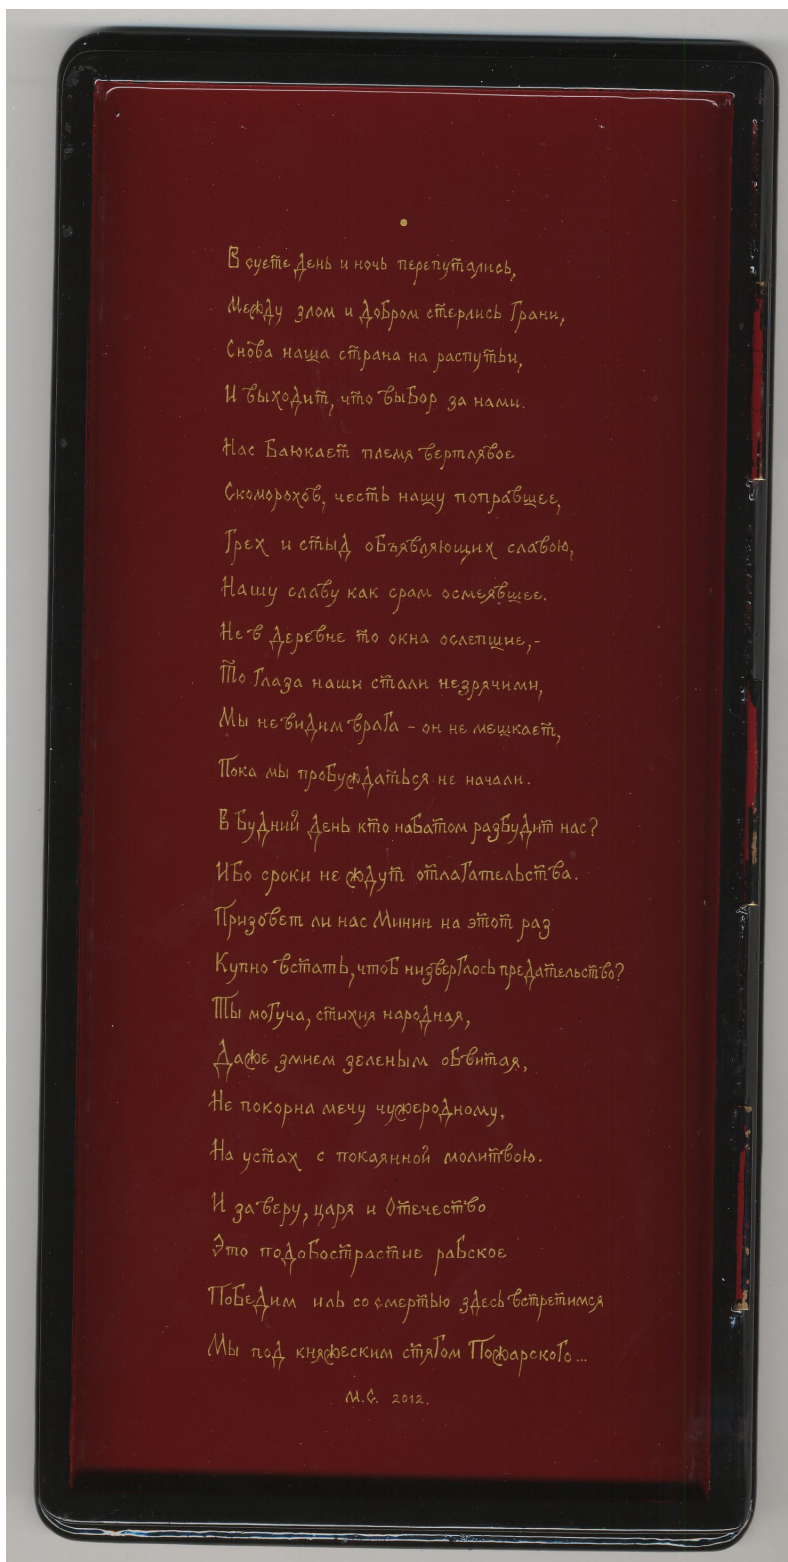 В суете день и ночь перепутались,
Между злом и добром стерлись грани,
Снова наша страна на распутьи,
И выходит, что выбор за нами.
Нас баюкает племя вертлявое
Скоморохов, честь нашу поправшее,
Грех и стыд объявляющих славою,
Нашу славу как срам осмеявшее.
Не в деревне то окна ослепшие,-
То глаза наши стали незрячими,
Мы не видим врага - он не мешкает,
Пока мы пробуждаться не начали.
В будний день кто набатом разбудит нас?
Ибо сроки не ждут отлагательства.
Призовет ли нас Минин на этот раз
Купно встать, чтоб низверглось предательство?
Ты могуча, стихия народная,
Даже змием зеленым обвитая,
Не покорна мечу чужеродному,
На устах с покаянной молитвою.
И за веру, царя и Отечество
Это подобострастие рабское
Победим иль со смертью здесь встретимся
Мы под княжеским стягом Пожарского...
М.С. 2012.